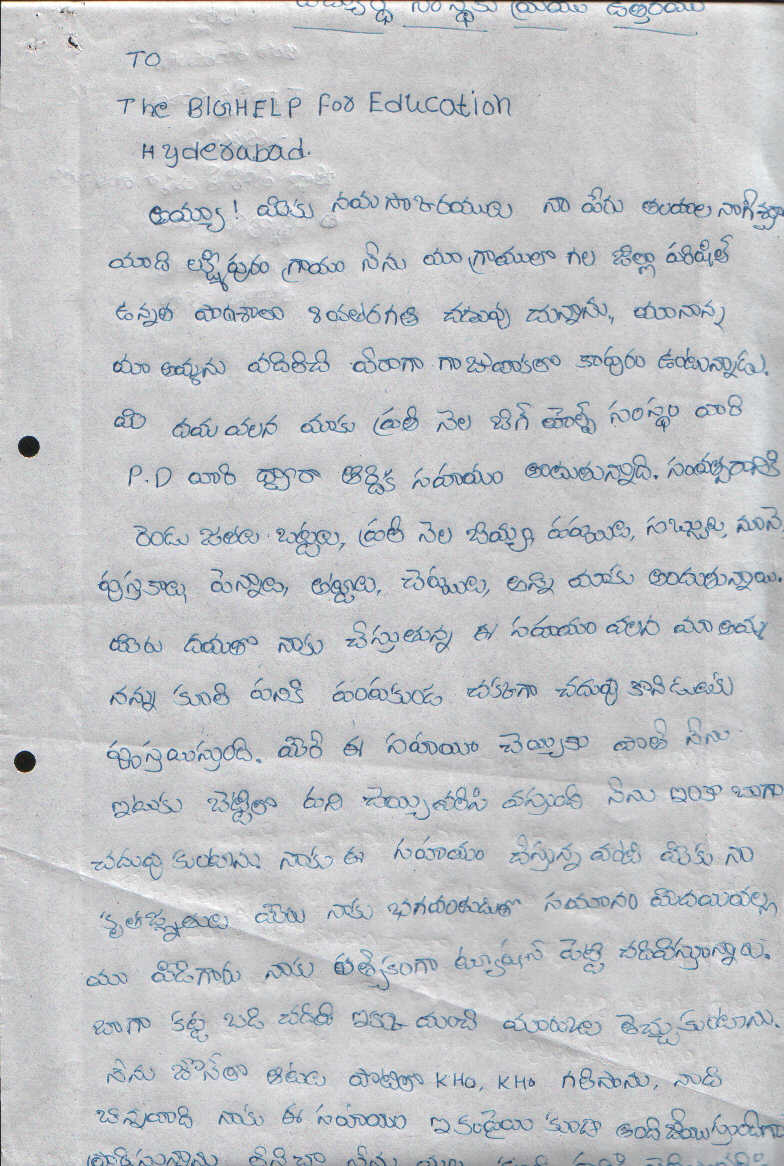 విద్యార్థి సంస్థకు వ్రాయు ఉత్తరము
TO
The BIGHELP For Education
Hyderabad.
అయ్యా! మీకు నమస్కారములు నా పేరు
మాది లక్ష్మీపురం గ్రామం నేను మా గ్రామంలో గల జిల్లా పరిషత్
ఉన్నత పాఠశాలలో 8వతరగతి చదువు చున్నాను, మానాన్న
మా అమ్మను వదిలేసి వేరేగా గాజువాకలో కాపురం ఉంటున్నాడు.
మీ దయ వలన మాకు ప్రతి నెల బిగ్ హెల్ప్ సంస్థ వారి
P.D వారి ద్వారా ఆర్థిక సహాయం అందుతున్నాది. సంవత్సరానికి
రెండు జతలు బట్టలు, ప్రతి నెల బియ్యం, పప్పులు, సబ్బులు, నూనె,
పుస్తకాలు, పెన్నులు, అట్టలు, చెప్పులు, అన్ని మాకు అందుతున్నాయి.
మీరు దయతో నాకు చేస్తున్న ఈ సహాయం వలన మా అమ్మ
నన్ను కూలి పనికి పంపకుండ చక్కగా చదువు కొనేటందుకు
పంపిస్తుంది. మీరే ఈ సహాయం చెయ్యక పోతే నేను
ఇటుక బట్టీలో పని చెయ్యవలసి వస్తుంది నేను ఇంకా బాగా
చదువు కుంటాను. నాకు ఈ సహాయం చేస్తున్న వంటి మీకు నా
కృతజ్ఞతలు మీరు నాకు భగవంతుడుతో సమానం మీదయవల్ల
మా పిడిగారు నాకు ప్రత్యేకంగా ట్యూషన్ పెట్టి చదివిస్తున్నారు.
బాగా కష్ట పడి చదివి ఇంకా మంచి మార్కులు తెచ్చుకుంటాను.
నేను జోనల్ ఆటలు పోటీలో KHo, KHo గెలిచాను,
నాకు ఈ సహాయం ఇకపై కూడా అంద జేయిస్తుందిగా